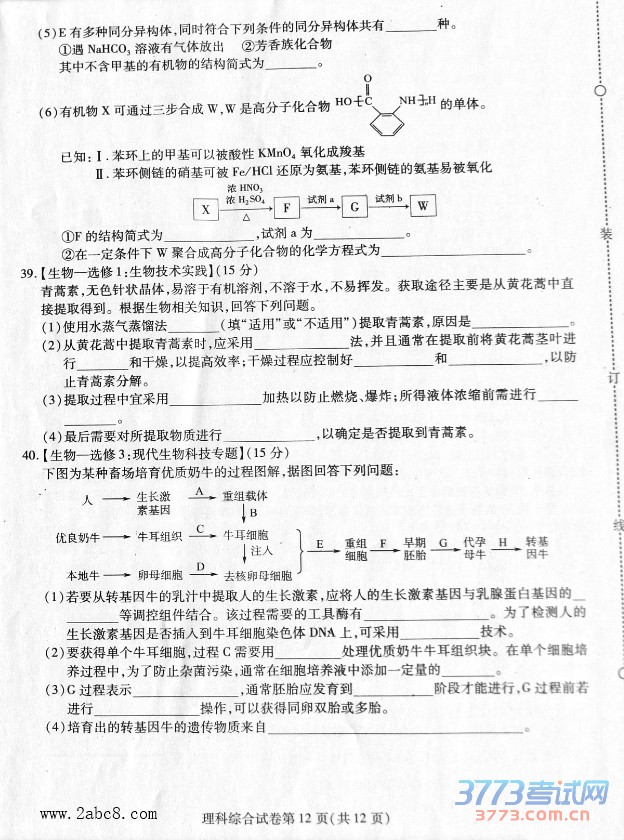 (5)E有多种同分异构体,同时符合下列条件的同分异构体共有______种。
①遇NaHCO₃溶液有气体放出 ②芳香族化合物
其中不含甲基的有机物的结构简式为______。
(6)有机物X可通过三步合成W,W是高分子化合物 HO[C O NH]ₙH 的单体。
已知:Ⅰ.苯环上的甲基可以被酸性KMnO₄氧化成羧基
Ⅱ.苯环侧链的硝基可被Fe/HCl还原为氨基,苯环侧链的氨基易被氧化
X 浓HNO₃ 浓H₂SO₄ △ F 试剂a G 试剂b W
①F的结构简式为____________,试剂a为____________。
②在一定条件下W聚合成高分子化合物的化学方程式为____________________。
39.【生物—选修1:生物技术实践】(15分)
青蒿素,无色针状晶体,易溶于有机溶剂,不溶于水,不易挥发。获取途径主要是从黄花蒿中直
接提取得到。根据生物相关知识,回答下列问题。
(1)使用水蒸气蒸馏法______(填“适用”或“不适用”)提取青蒿素,原因是____________。
(2)从黄花蒿中提取青蒿素时,应采用____________法,并且通常在提取前将黄花蒿茎叶进
行______和干燥,以提高效率;干燥过程应控制好________和____________,以防
止青蒿素分解。
(3)提取过程中宜采用____________加热以防止燃烧、爆炸;所得液体浓缩前需进行______
______。
(4)最后需要对所提取物质进行____________,以确定是否提取到青蒿素。
40.【生物—选修3:现代生物科技专题】(15分)
下图为某种畜场培育优质奶牛的过程图解,据图回答下列问题:
人 生长激素基因 A 重组载体
B
优良奶牛 牛耳组织 C 牛耳细胞
注入
E 重组细胞 F 早期胚胎 G 代孕母牛 H 转基因牛
本地牛 卵母细胞 D 去核卵母细胞
(1)若要从转基因牛的乳汁中提取人的生长激素,应将人的生长激素基因与乳腺蛋白基因的__
______等调控组件结合。该过程需要的工具酶有________________。为了检测人的
生长激素基因是否插入到牛耳细胞染色体DNA上,可采用__________技术。
(2)要获得单个牛耳细胞,过程C需要用________处理优质奶牛牛耳组织块。在单个细胞培
养过程中,为了防止杂菌污染,通常在细胞培养液中添加一定量的________。
(3)G过程表示______________,通常胚胎应发育到__________阶段才能进行,G过程前若
进行____________操作,可以获得同卵双胎或多胎。
(4)培育出的转基因牛的遗传物质来自________________________________。
装
订
线
www.2abc8.com
理科综合试卷第12页(共12页)
3773考试网
3773.com.cn